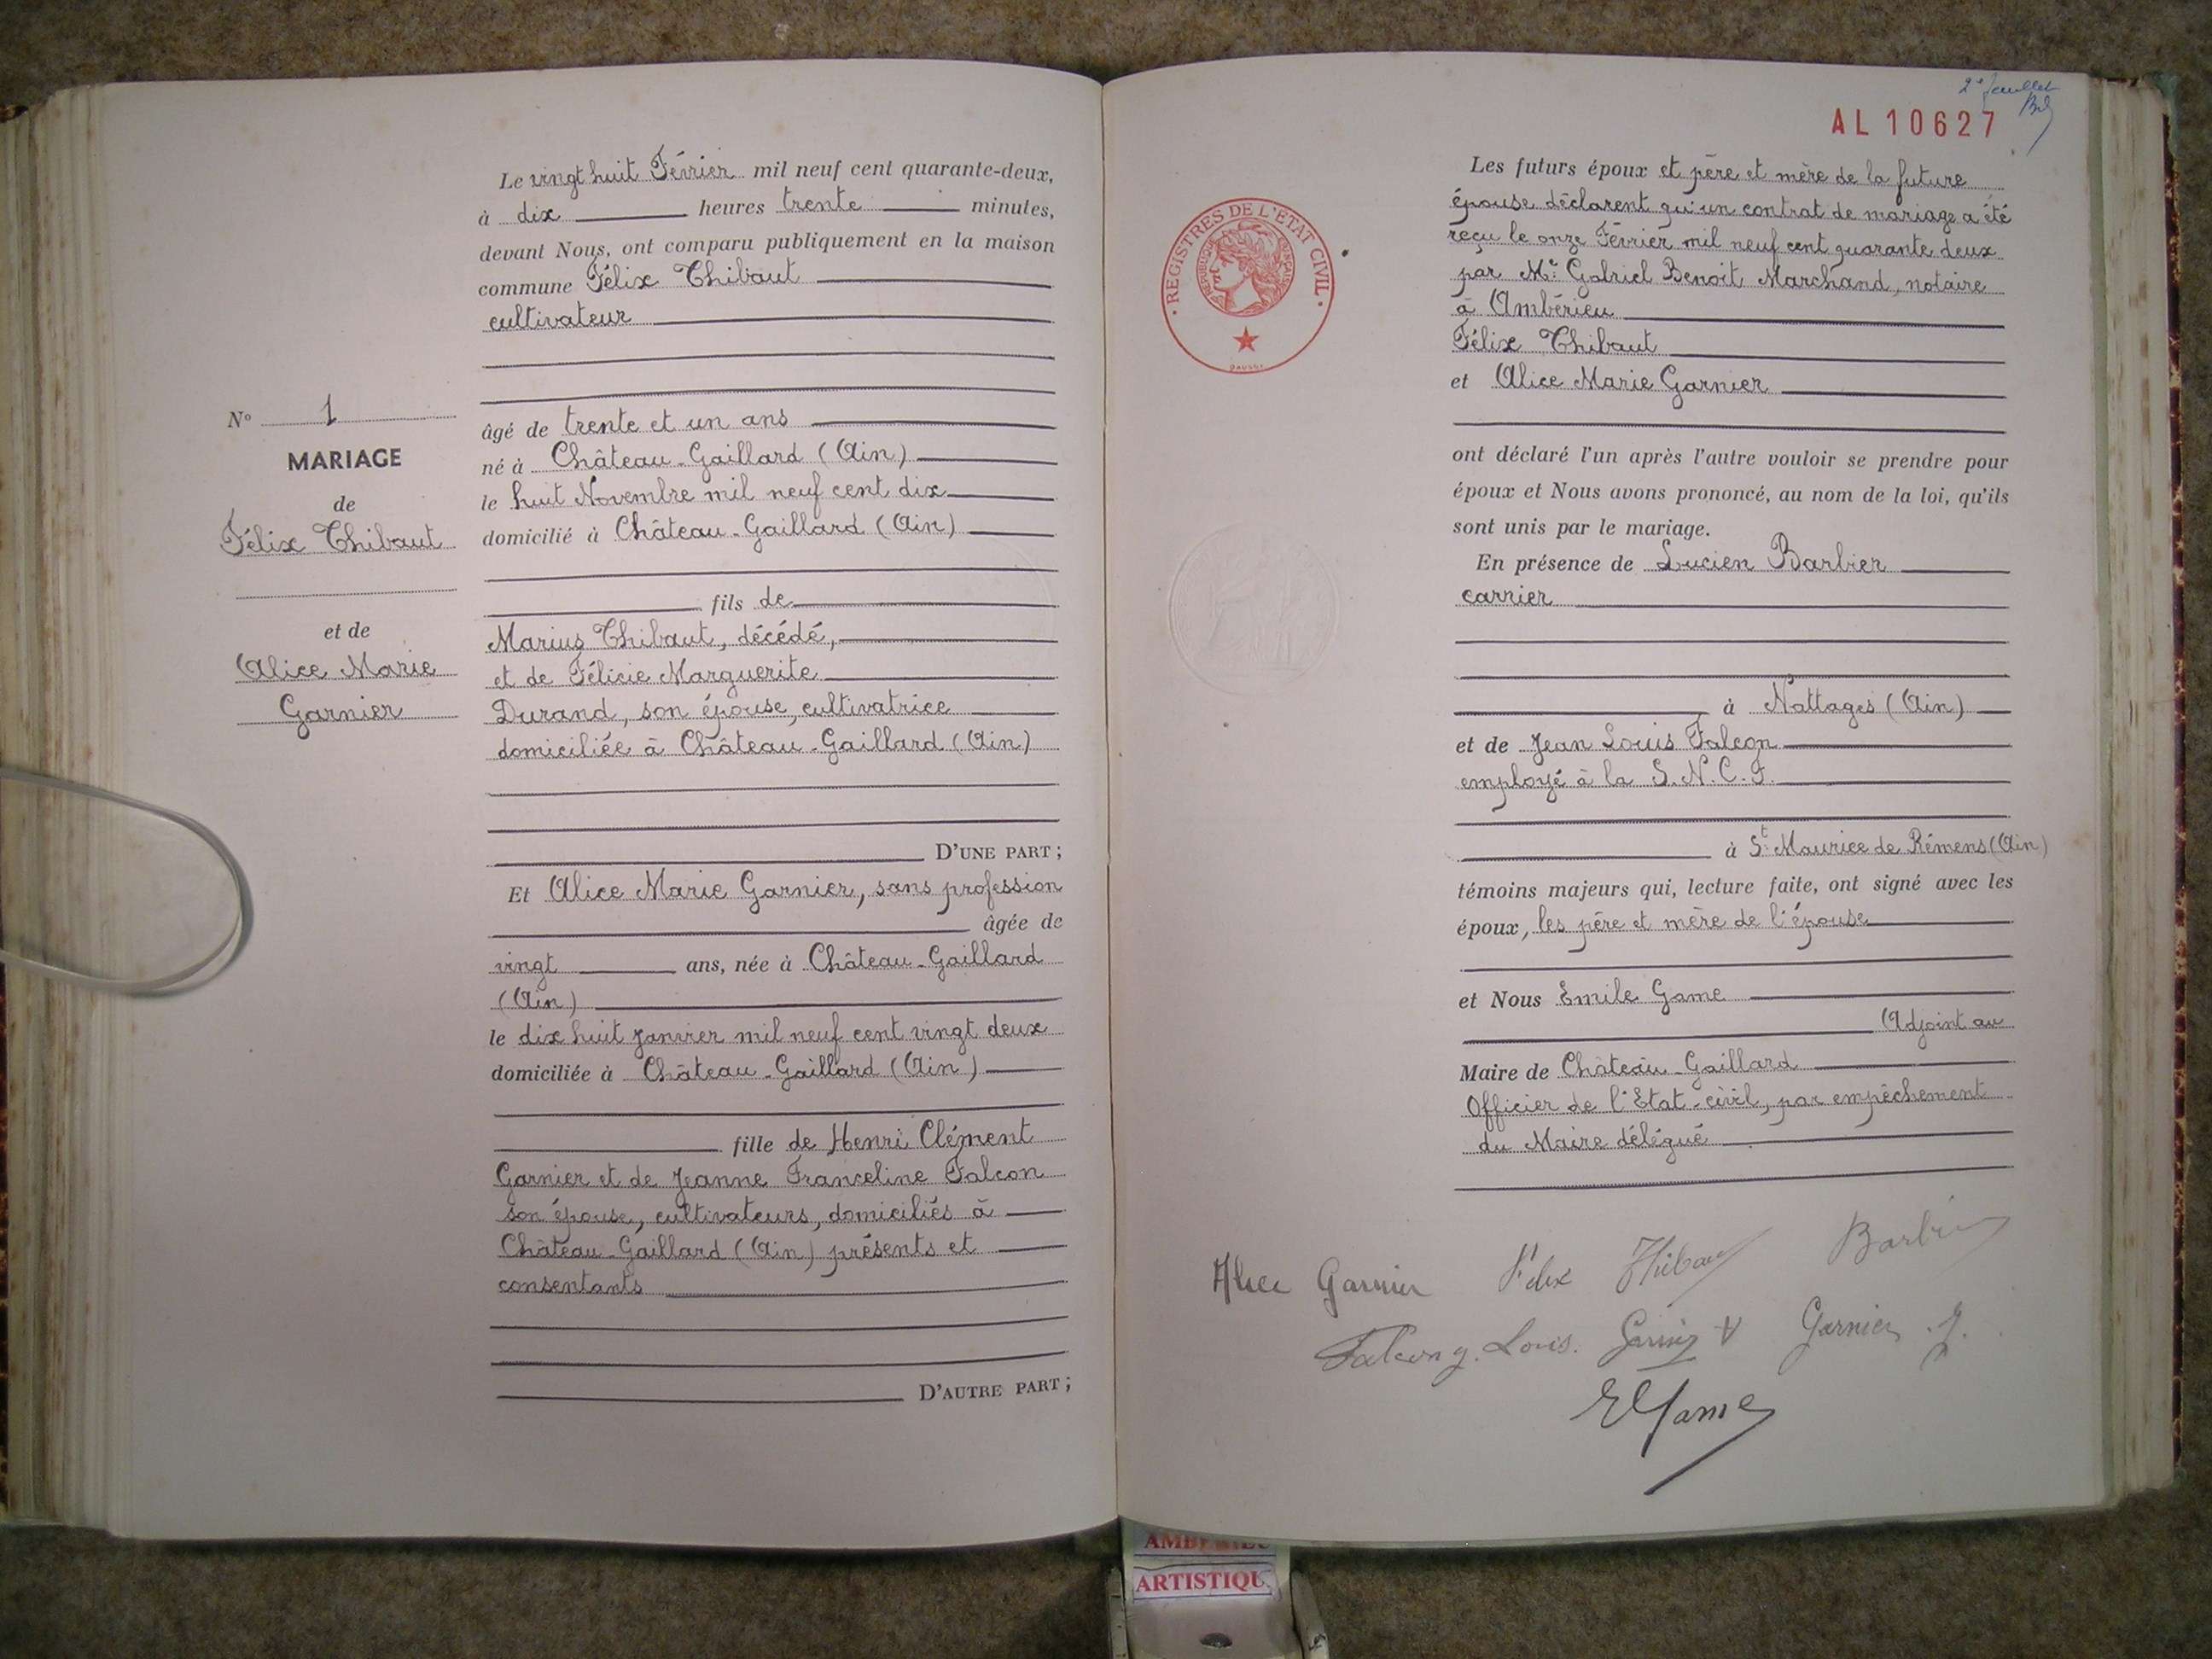 Le vingt huit Février mil neuf cent quarante-deux,
à dix heures trente minutes,
devant Nous, ont comparu publiquement en la maison
commune Félix Thibaut
cultivateur
âgé de trente et un ans
né à Château-Gaillard (Ain)
le huit Novembre mil neuf cent dix
domicilié à Château-Gaillard (Ain)
fils de
Marius Thibaut, décédé,
et de Félicie Marguerite
Durand, son épouse, cultivatrice
domiciliée à Château-Gaillard (Ain)
D'UNE PART ;
Et Alice Marie Garnier, sans profession
âgée de
vingt ans, née à Château-Gaillard
(Ain)
le dix huit janvier mil neuf cent vingt deux
domiciliée à Château-Gaillard (Ain)
fille de Henri Clément
Garnier et de Jeanne Franceline Falcon
son épouse, cultivateurs, domiciliés à
Château-Gaillard (Ain) présents et
consentants
D'AUTRE PART ;
N° 1
MARIAGE
de
Félix Thibaut
et de
Alice Marie
Garnier
AL 10627
REGISTRES DE L'ÉTAT CIVIL
Les futurs époux et père et mère de la future
épouse déclarent qu'un contrat de mariage a été
reçu le onze Février mil neuf cent quarante deux
par Me Gabriel Benoit Marchand, notaire
à Ambérieu
Félix Thibaut
et Alice Marie Garnier
ont déclaré l'un après l'autre vouloir se prendre pour
époux et Nous avons prononcé, au nom de la loi, qu'ils
sont unis par le mariage.
En présence de Lucien Barbier
carrier
à Nattages (Ain)
et de Jean Louis Falcon
employé à la S.N.C.F.
à St Maurice de Rémens (Ain)
témoins majeurs qui, lecture faite, ont signé avec les
époux, les père et mère de l'épouse
et Nous Emile Game
Adjoint au
Maire de Château-Gaillard
Officier de l'Etat-civil, par empêchement
du Maire délégué
Alice Garnier Félix Thibaut Barbier
Falcon J. Louis. Garnier Garnier J.
E Game
AMBERIEU
ARTISTIQU